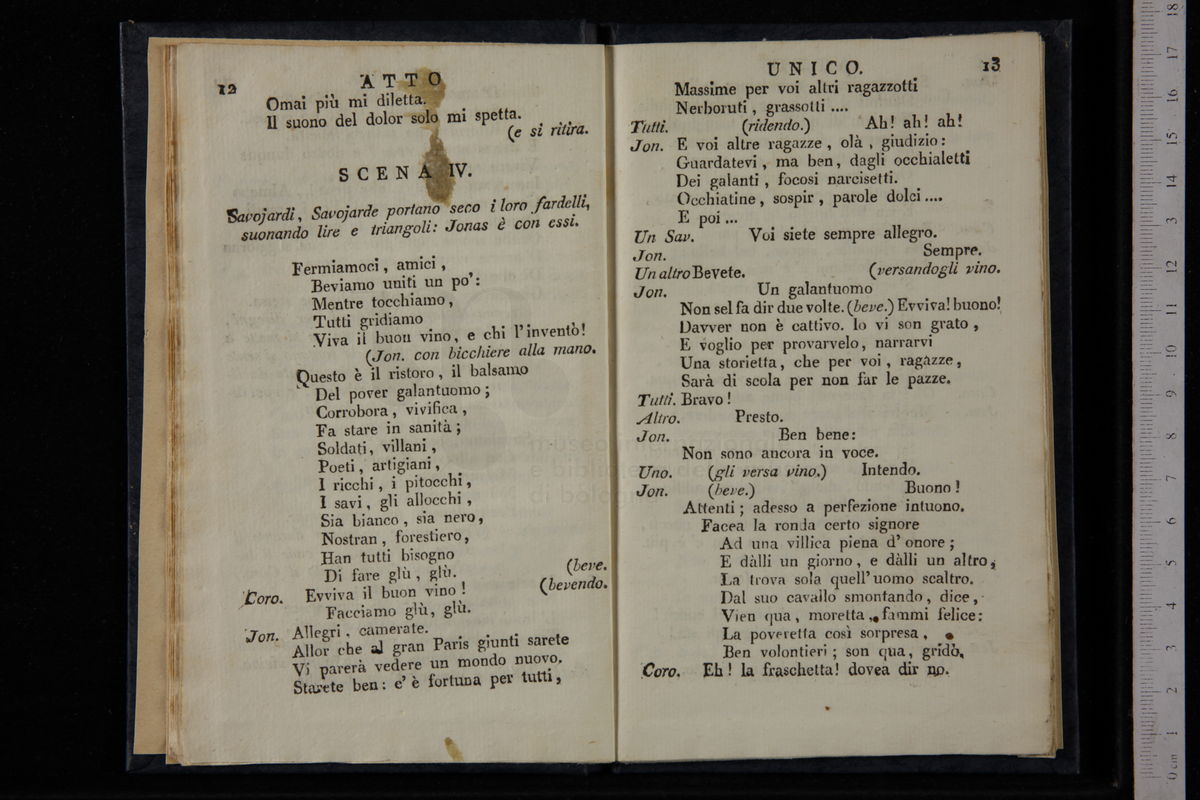 12
ATTO
Omai più mi diletta.
Il suono del dolor solo mi spetta. . .
(e si ritira.
SCENA IV.
Savojardi, Savojarde portano seco i loro fardelli,
suonando lire e triangoli: Jonas è con essi.
Fermiamoci, amici,
Beviamo uniti un po':
Mentre tocchiamo,
Tutti gridiamo
Viva il buon vino, e chi l'inventò!
(Jon. con bicchiere alla mano.
Questo è il ristoro, il balsamo
Del pover galantuomo;
Corrobora, vivifica,
Fa stare in sanità;
Soldati, villani,
Poeti, artigiani,
I ricchi, i pitocchi,
I savi, gli allocchi,
Sia bianco, sia nero,
Nostran, forestiero,
Han tutti bisogno
Di fare glù, glù. (beve.
Coro. Evviva il buon vino! (bevendo.
Facciamo glù, glù.
Jon. Allegri, camerate.
Allor che al gran Paris giunti sarete
Vi parerà vedere un mondo nuovo.
Starete ben: e' è fortuna per tutti,
UNICO. 13
Massime per voi altri ragazzotti
Nerboruti, grassotti ....
Tutti. (ridendo.) Ah! ah! ah!
Jon. E voi altre ragazze, olà, giudizio:
Guardatevi, ma ben, dagli occhialetti
Dei galanti, focosi narcisetti.
Occhiatine, sospir, parole dolci ....
E poi ...
Un Sav. Voi siete sempre allegro.
Jon. Sempre.
Un altro Bevete. (versandogli vino.
Jon. Un galantuomo
Non sel fa dir due volte. (beve.) Evviva! buono!
Davver non è cattivo. Io vi son grato,
E voglio per provarvelo, narrarvi
Una storietta, che per voi, ragazze,
Sarà di scola per non far le pazze.
Tutti. Bravo!
Altro. Presto.
Jon. Ben bene:
Non sono ancora in voce.
Uno. (gli versa vino.) Intendo.
Jon. (beve.) Buono!
Attenti; adesso a perfezione intuono.
Facea la ronda certo signore
Ad una villica piena d'onore;
E dàlli un giorno, e dàlli un altro,
La trova sola quell'uomo scaltro.
Dal suo cavallo smontando, dice,
Vien qua, moretta, fammi felice:
La poveretta così sorpresa,
Ben volontieri; son qua, gridò,
Coro. Eh! la fraschetta! dovea dir no.